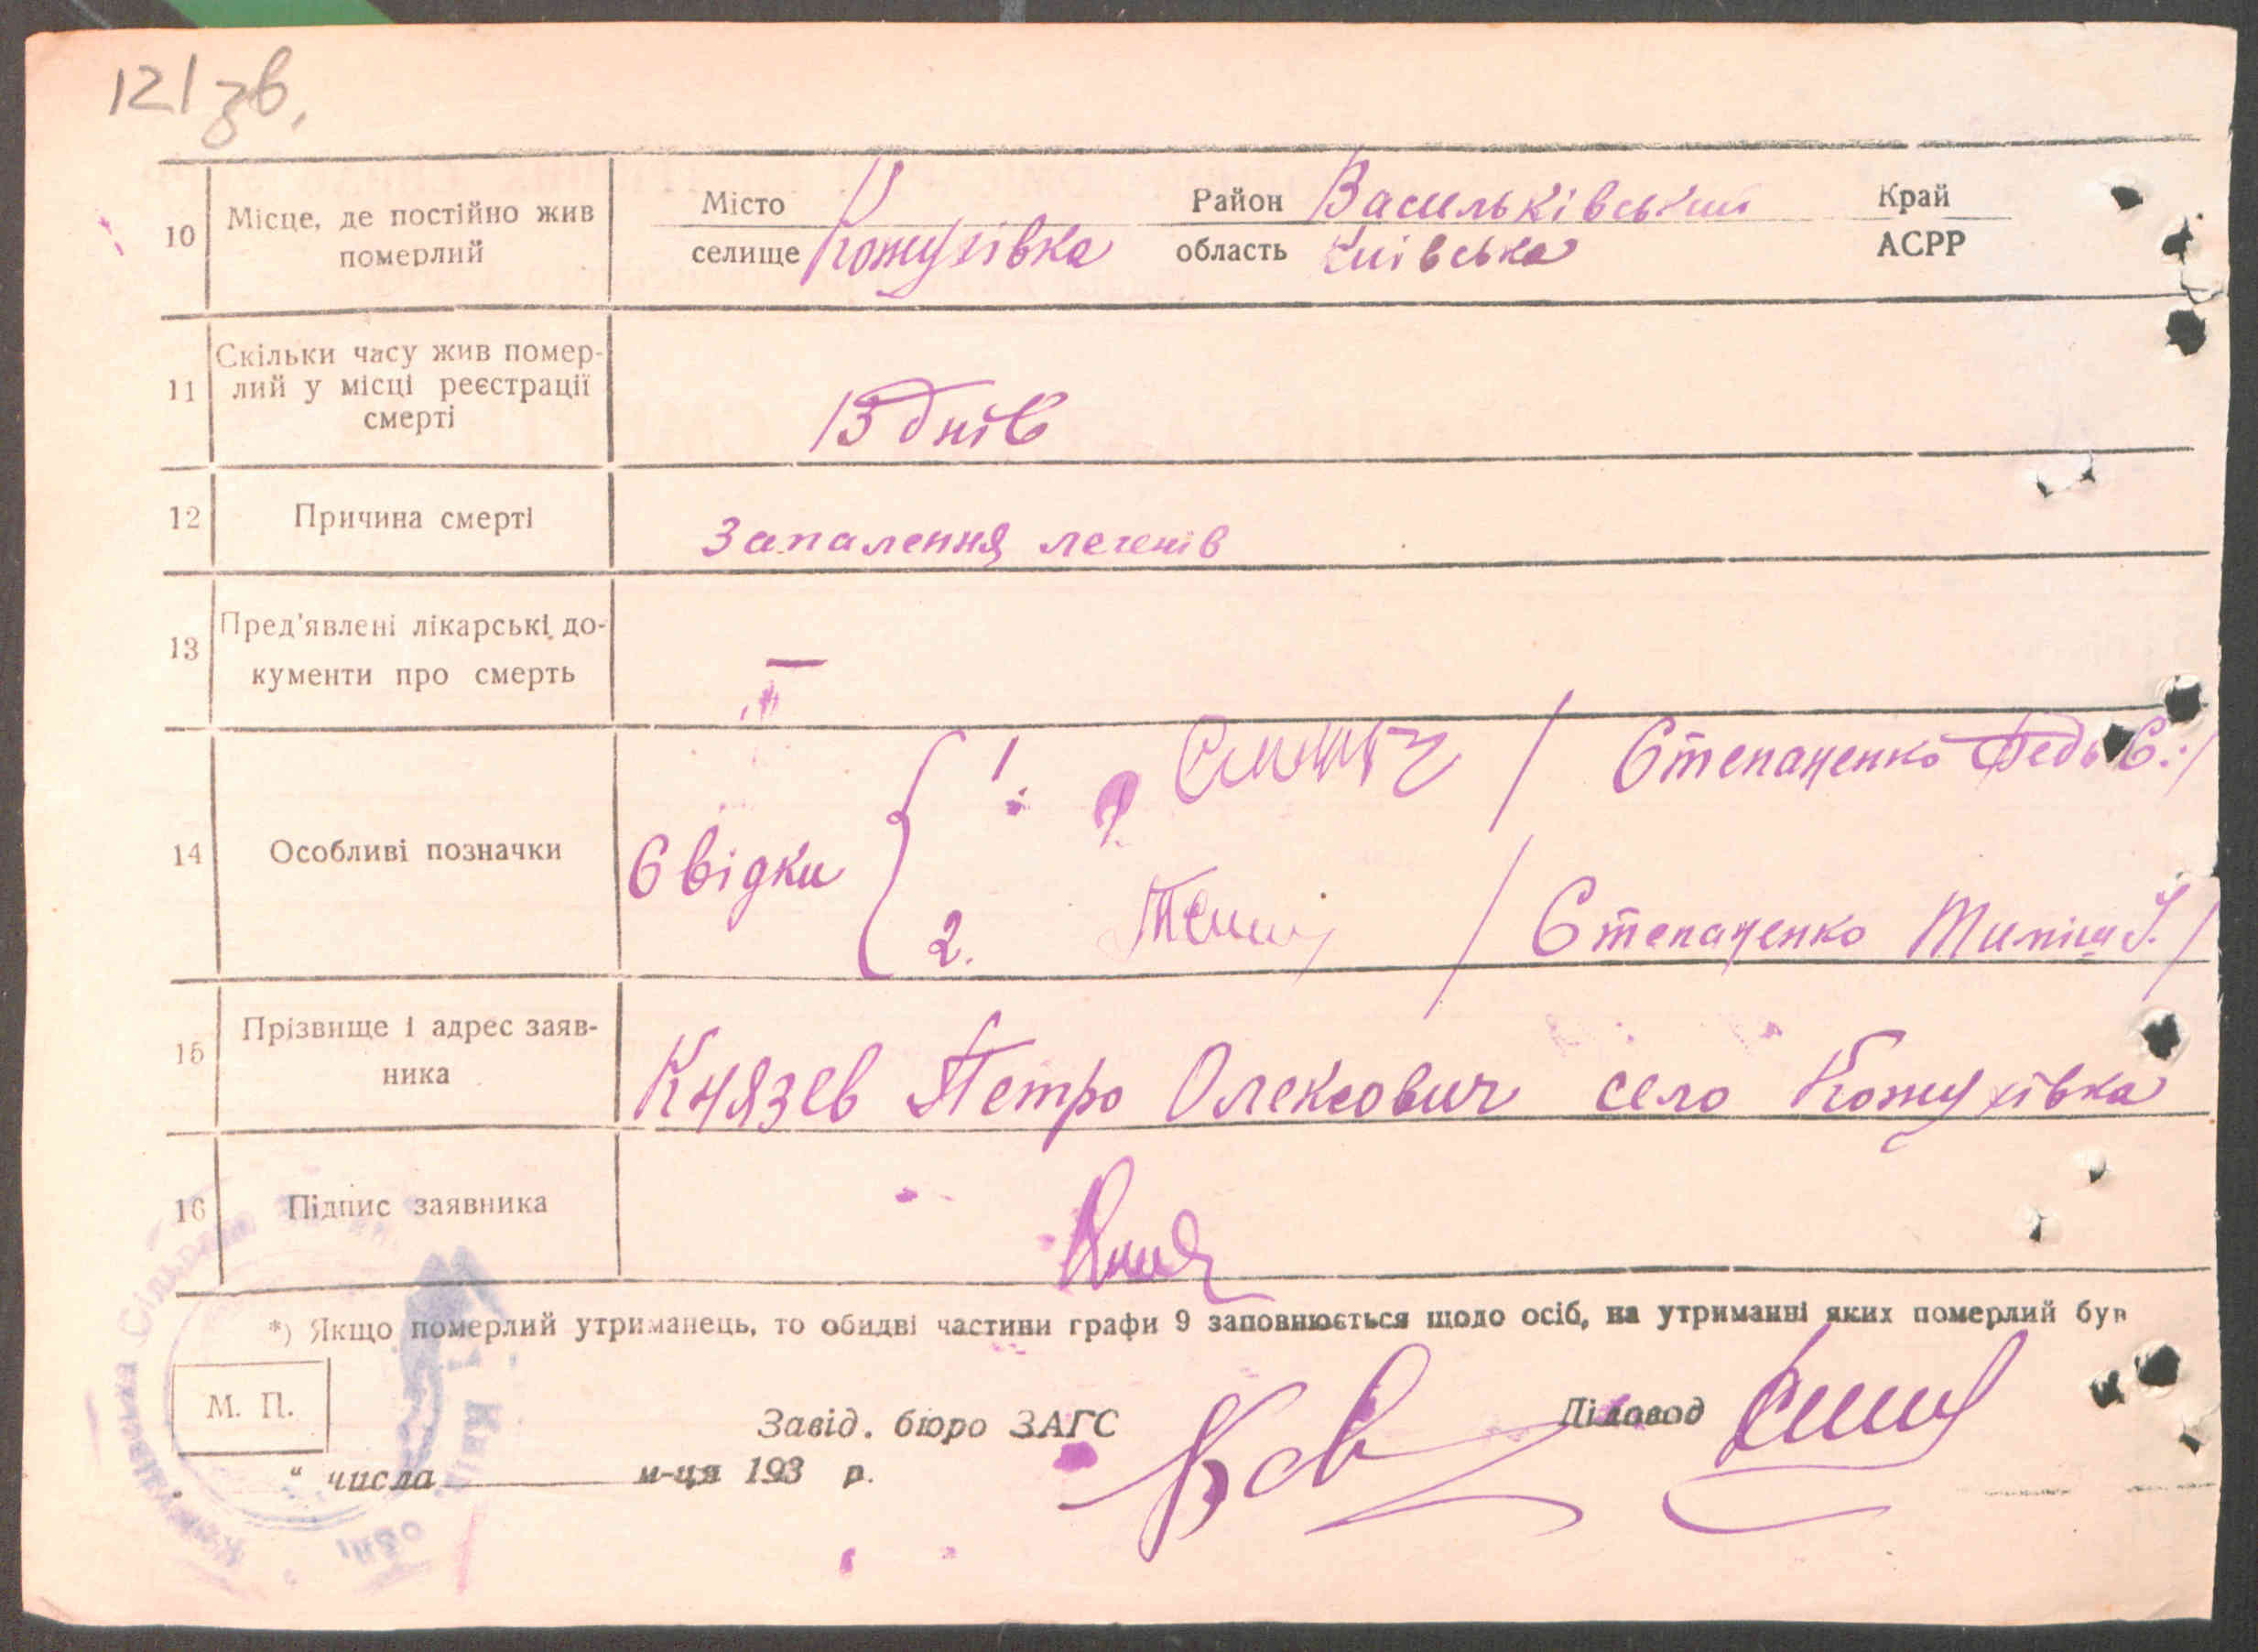 121зв.
10 Місце, де постійно жив померлий
Місто селище Кожухівка Район Васильківський область Київська Край АСРР
11 Скільки часу жив помер-
лий у місці реєстрації
смерті
13 днів
12 Причина смерті
Запалення легенів
13 Пред'явлені лікарські до-
кументи про смерть
—
14 Особливі позначки
Свідки
1. / Степаненко Федь С. /
2. / Степаненко Тиміш І. /
15 Прізвище і адрес заяв-
ника
Князев Петро Олексович село Кожухівка
16 Підпис заявника
*) Якщо померлий утриманець, то обидві частини графи 9 заповнюється щодо осіб, на утриманні яких померлий був
М. П.
Завід. бюро ЗАГС Діловод
“ числа м-ця 193 р.